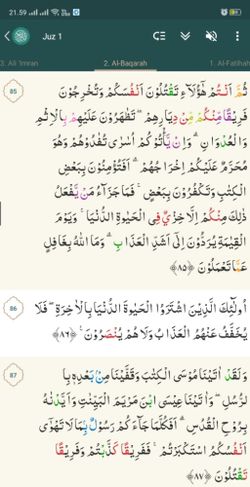 21.59
Juz 1
3. Ali 'Imran
2. Al-Baqarah
1. Al-Fatihah
85
ثُمَّ اَنْتُمْ هٰٓؤُلَاۤءِ تَقْتُلُوْنَ اَنْفُسَكُمْ وَتُخْرِجُوْنَ
فَرِيْقًا مِّنْكُمْ مِّنْ دِيَارِهِمْۖ تَظٰهَرُوْنَ عَلَيْهِمْ بِالْاِثْمِ
وَالْعُدْوَانِۗ وَاِنْ يَّأْتُوْكُمْ اُسٰرٰى تُفٰدُوْهُمْ وَهُوَ
مُحَرَّمٌ عَلَيْكُمْ اِخْرَاجُهُمْۗ اَفَتُؤْمِنُوْنَ بِبَعْضِ
الْكِتٰبِ وَتَكْفُرُوْنَ بِبَعْضٍۚ فَمَا جَزَاۤءُ مَنْ يَّفْعَلُ
ذٰلِكَ مِنْكُمْ اِلَّا خِزْيٌ فِى الْحَيٰوةِ الدُّنْيَاۚ وَيَوْمَ
الْقِيٰمَةِ يُرَدُّوْنَ اِلٰٓى اَشَدِّ الْعَذَابِۗ وَمَا اللّٰهُ بِغَافِلٍ
عَمَّا تَعْمَلُوْنَ ﴿٨٥﴾
86
اُولٰۤىِٕكَ الَّذِيْنَ اشْتَرَوُا الْحَيٰوةَ الدُّنْيَا بِالْاٰخِرَةِۖ فَلَا
يُخَفَّفُ عَنْهُمُ الْعَذَابُ وَلَا هُمْ يُنْصَرُوْنَ ﴿٨٦﴾
87
وَلَقَدْ اٰتَيْنَا مُوْسَى الْكِتٰبَ وَقَفَّيْنَا مِنْۢ بَعْدِهٖ بِا
لرُّسُلِۖ وَاٰتَيْنَا عِيْسَى ابْنَ مَرْيَمَ الْبَيِّنٰتِ وَاَيَّدْنٰهُ
بِرُوْحِ الْقُدُسِۗ اَفَكُلَّمَا جَاۤءَكُمْ رَسُوْلٌۢ بِمَا لَا تَهْوٰٓى
اَنْفُسُكُمُ اسْتَكْبَرْتُمْۚ فَفَرِيْقًا كَذَّبْتُمْ وَفَرِيْقًا
تَقْتُلُوْنَ ﴿٨٧﴾